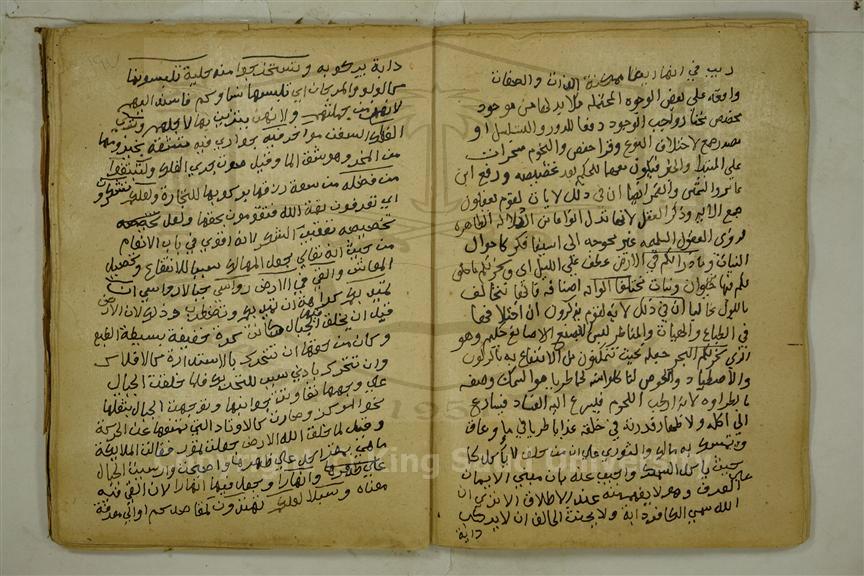 ريب في انها دايما ممكنة الذات والصفات
واقعة على بعض الوجوه المحتملة فلا بد لها من موجود
مخصص مختار واجب الوجود دفعا للدور والتسلسل او
مصدر جمع لاختلاف النوع وقرأ حفص والنجوم مسخرات
على المبتدا والخبر فيكون تعميما للحكم بعد تخصيصه ورفع ابن
عامر والشمس والقمر ايضا ان في ذلك لايات لقوم يعقلون
جمع الاية وذكر العقل لانها تدل انواعا من الدلالة الظاهرة
لذوي العقول السليمة غير محوجة الى استيفا فكر كاحوال
النبات وما ذرأ لكم في الارض عطف على الليل اي وسخر لكم ما خلق
لكم فيها من حيوان ونبات مختلفا الوانه اصنافه فانها تتخالف
باللون غالبا ان في ذلك لاية لقوم يذكرون ان اختلافها
في الطباع والهيات والمناظر ليس الا بصنع صانع حكيم وهو
الذي سخر لكم البحر جعله بحيث تتمكنون من الانتفاع به بالركوب
والاصطياد والغوص لتاكلوا منه لحما طريا هو السمك وصفه
بالطراوة لانه ارطب اللحوم فيسرع اليه الفساد فيسارع
الى اكله ولاظهار قدرته في خلقه عذبا طريا في ما زعاق
وتمسك به مالك والثوري على ان من حلف لا ياكل لحما
حنث باكل السمك واجيب عنه بان مبنى الايمان
على العرف وهو لا يفهم منه عند الاطلاق الا ترى ان
الله سمى الكافر دابة ولا يحنث الحالف ان لا يركب
دابة
دابة بركوبه وتستخرجوا منه حلية تلبسونها
كاللولو والمرجان اي تلبسها نساوكم فاسند اليهم
لانهن من جملتهم ولانهن يتزين بها لاجلهم وترى
الفلك السفن مواخر فيه جواري فيه تشقه بحيزومها
من المخر وهو شق الما وقيل صوت جري الفلك ولتبتغوا
من فضله من سعة رزقه بركوبها للتجارة ولعلكم تشكرون
اي تعرفون نعمة الله فتقومون بحقها ولعل
تخصيصه بتعقيب الشكر لانه اقوى في باب الانعام
من حيث انه تعالى جعل المهالك سببا للانتفاع وتحصيل
المعاش والقى في الارض رواسي جبالا رواسي ان
تميد بكم كراهة ان تميد بكم وتضطرب وذلك لان الارض
قبل ان يخلق فيها الجبال كانت كرة خفيفة بسيطة الطبع
وكان من حقها ان تتحرك بالاستدارة كالافلاك
وان تتحرك بادنى سبب للتحريك فلما خلقت الجبال
على وجهها تفاوتت جوانبها وتوجهت الجبال بثقلها
نحو المركز وصارت كالاوتاد التي تمنعها عن الحركة
وقيل لما خلق الله الارض جعلت تمور فقالت الملايكة
ما هي بمقر احد على ظهرها فاصبحت وارسيت الجبال
على ظهرها وانهارا وجعل فيها انهارا لان القى فيه
معناه وسبلا لعلكم تهتدون لمقاصدكم او الى معرفة